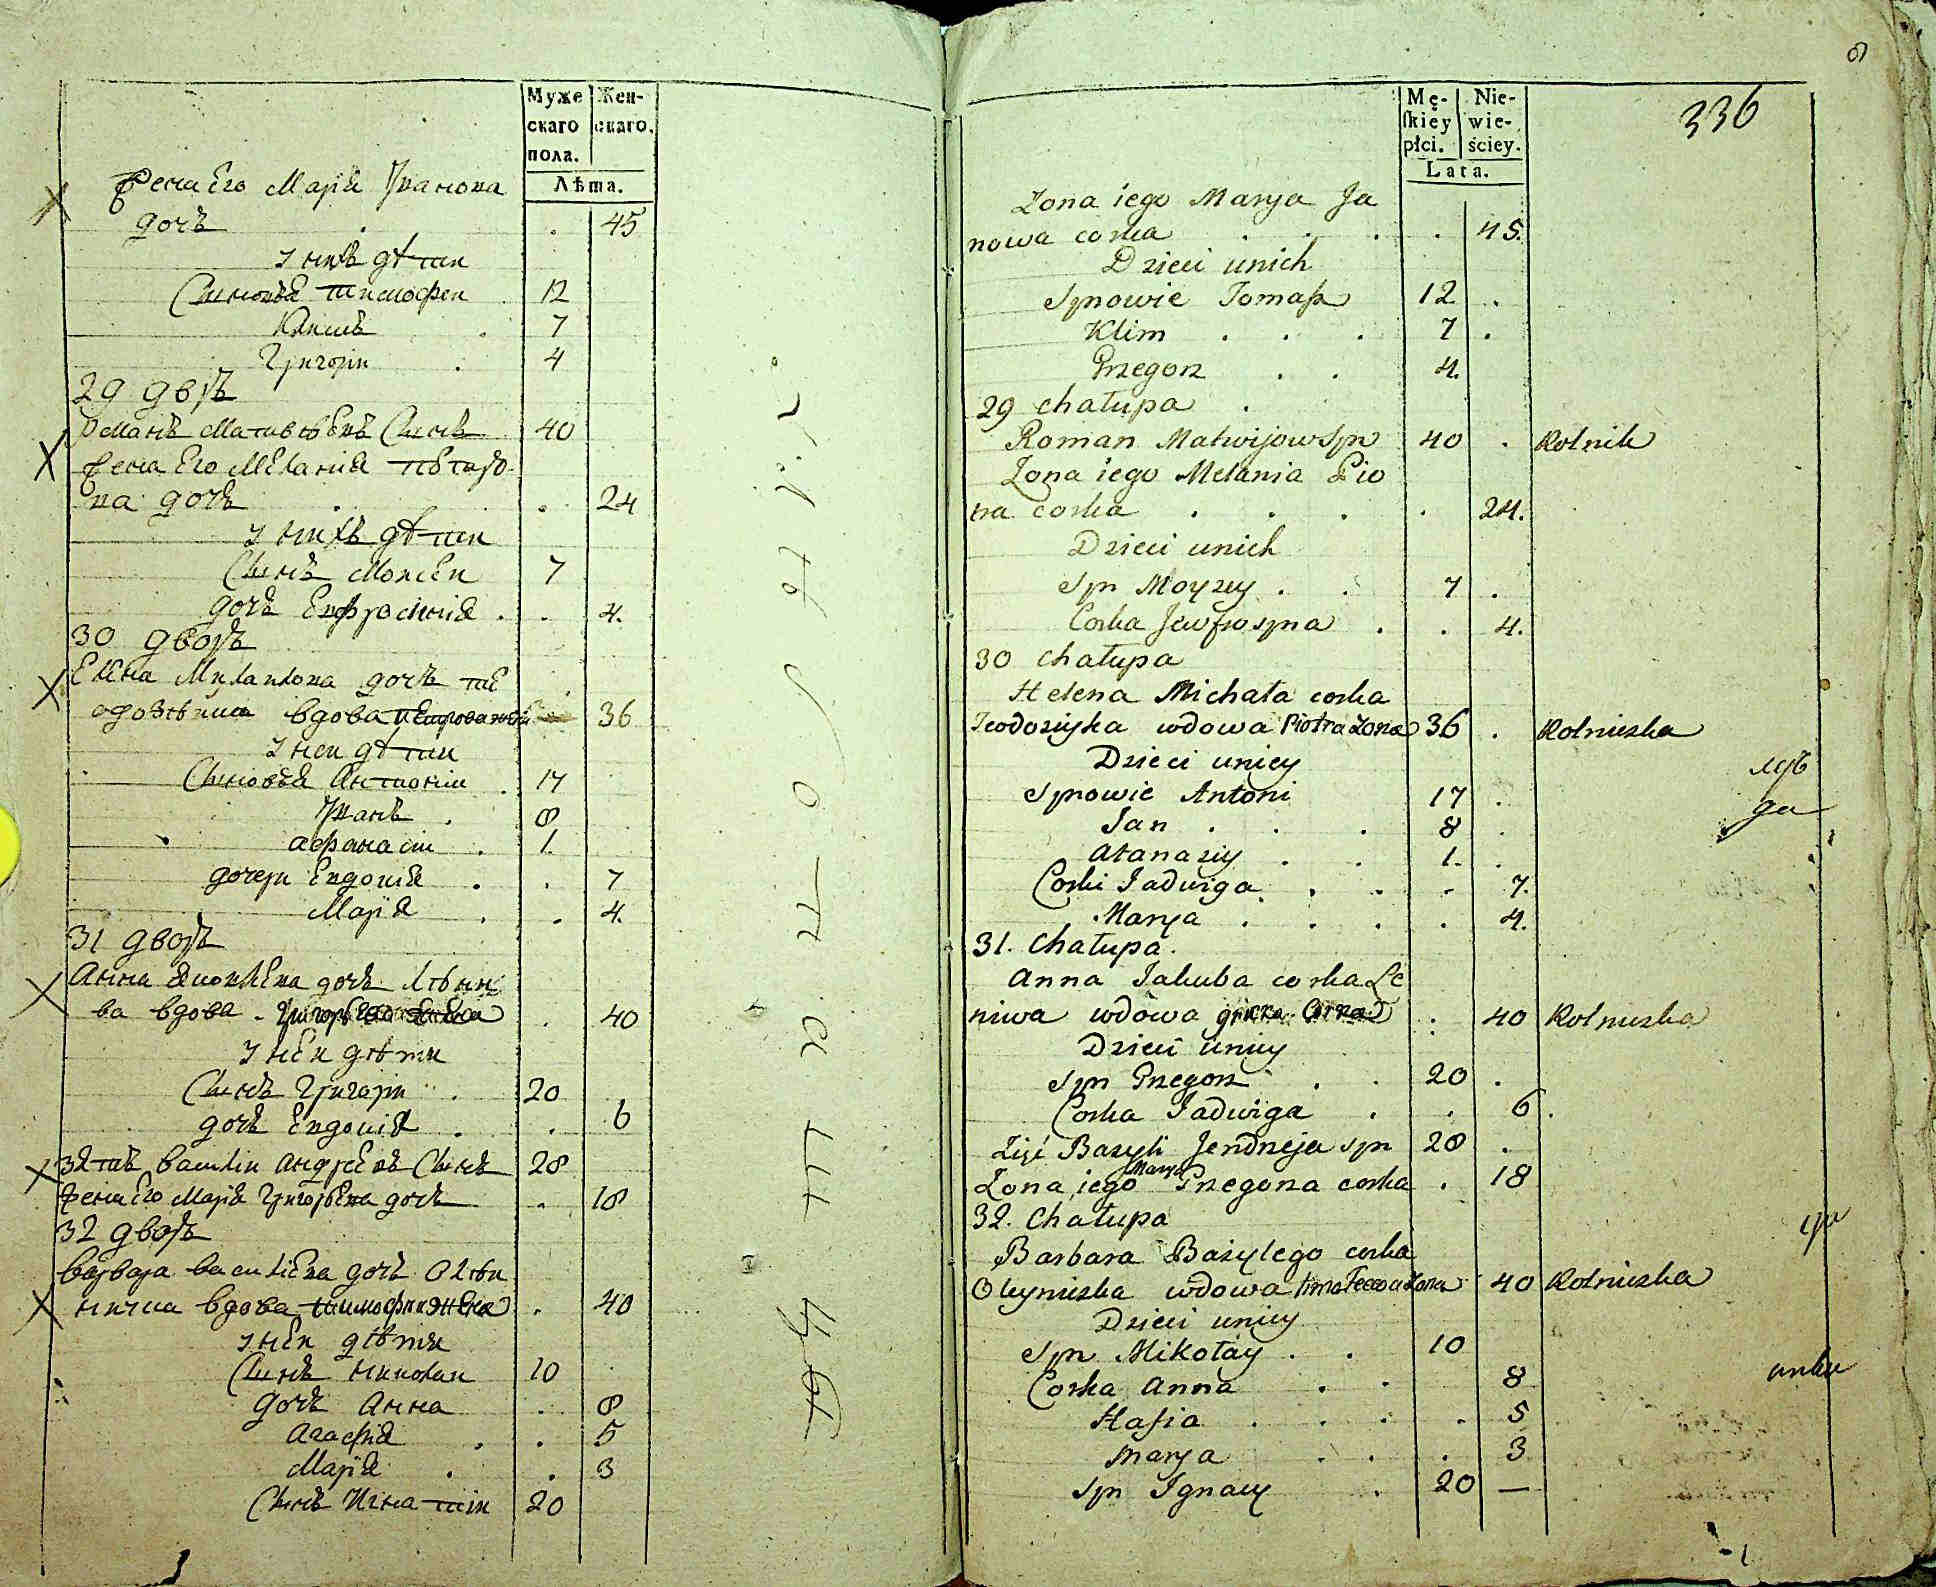 Муже
скаго
пола.
Жен-
скаго.
Лѣта.
жена Его Марія Іванова
дочь . . 45
у нихъ дѣти
Сыновья тимофеи 12
Климъ . 7
Григорїи . 4
29 дворъ
Романъ Матвѣевъ Сынъ 40
жена Его Меланїя петро-
ва дочь . . 24
у нихъ дѣти
Сынъ Моисеи 7
дочь Евфросинїя . . 4.
30 дворъ
Елена Михаилова дочь
вдова 36
у неи дѣти
Сыновья Антонїи . 17
Іванъ . 8
афанасїи . 1.
дочери Евдокїя . . 7
Марїя . . 4.
31 дворъ
Анна Яковлева дочь Лѣни
ва вдова . 40
у неи дѣти
Сынъ Григорїи . 20
дочь Евдокїя . . 6
зять василїи андреевъ Сынъ 28
жена Его Марїя Григорьева дочь . 18
32 дворъ
варвара василїева дочь Олѣи
ничиа вдова тимофия жена . 40
у неи дѣти
Сынъ николаи 10
дочь Анна . 8
агафїя . . 5
Марїя . . 3
Сынъ Игнатїи 20
6
336
Mę-
ſkiey
płci.
Nie-
wie-
ściey.
Lata.
Zona iego Marya Ja
nowa corka . . . . 45.
Dzieci unich
Synowie Tomaſz 12 .
Klim . . . 7 .
Grzegorz . . 4.
29 chałupa .
Roman Matwijow Syn 40 . Rolnik
Zona iego Melania Pio
tra corka . . . . 24.
Dzieci unich
Syn Moyzey . . 7 .
Corka Jewfrosyna . . 4.
30 chałupa
Helena Michała corka
Teodozijska wdowa Piotra zona 36 . Rolniczka
Dzieci uniey
Synowie Antoni 17 .
Jan . . . 8 .
Atanaziy . . 1. .
Corki Jadwiga . . . 7.
Marya . . . . 4.
31. Chałupa.
Anna Jakuba corka Le
niwa wdowa . 40 Rolniczka
Dzieci uniey
Syn Grzegorz . . 20 .
Corka Jadwiga . . 6 .
Zięć Bazyli Jendrzeja syn 28 .
Marya
Zona iego Grzegorza corka . 18
32. Chałupa
Barbara Bazylego corka
Oleyniczka wdowa zona 40 Rolniczka
Dzieci uniey
Syn Mikołay . . 10
Corka Anna . . 8
Hafia . . . . 5
Marya . . . 3
Syn Ignacy . 20 —